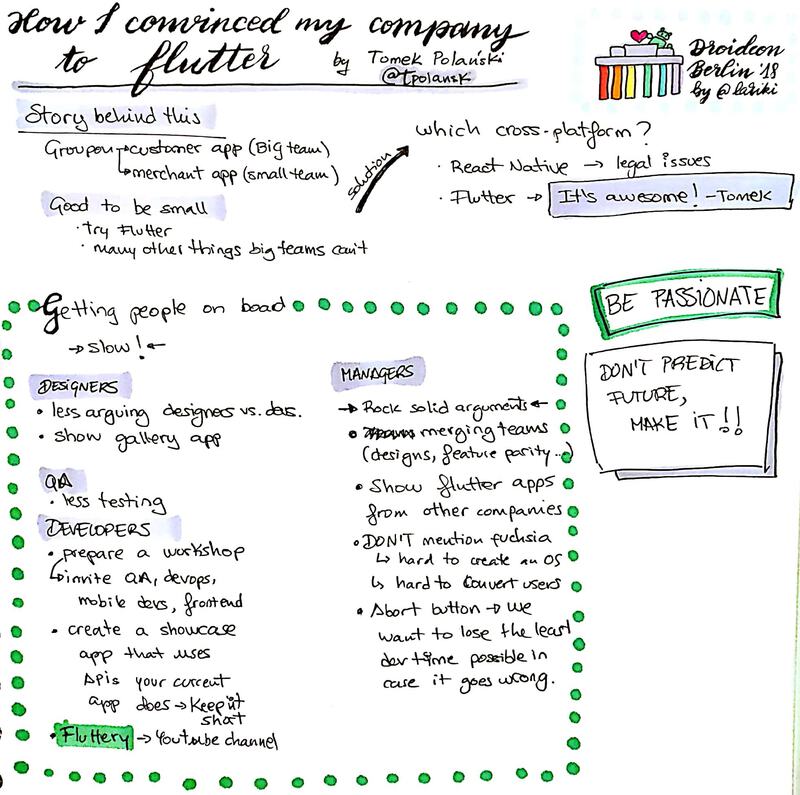 How I convinced my company
to flutter by Tomek Polański
@tpolansk
Droidcon
Berlin '18
by @lariki
Story behind this
Groupon → customer app (Big team)
→ merchant app (small team)
Good to be small
· try Flutter
· many other things big teams can't
solution
which cross-platform?
· React Native → legal issues
· Flutter → It's awesome! -Tomek
Getting people on boad
→ slow! ←
DESIGNERS
• less arguing designers vs. devs.
• show gallery app
QA
• less testing
DEVELOPERS
• prepare a workshop
↳ invite QA, devops,
mobile devs, frontend
• create a showcase
app that uses
Apis your current
app does → Keep it
short
• Fluttery → Youtube channel
MANAGERS
→ Rock solid arguments ←
• merging teams
(designs, feature parity...)
• Show flutter apps
from other companies
• DON'T mention fuchsia
↳ hard to create an OS
↳ hard to convert users
• Abort button → we
want to lose the least
dev time possible in
case it goes wrong.
BE PASSIONATE
DON'T PREDICT
FUTURE,
MAKE IT!!